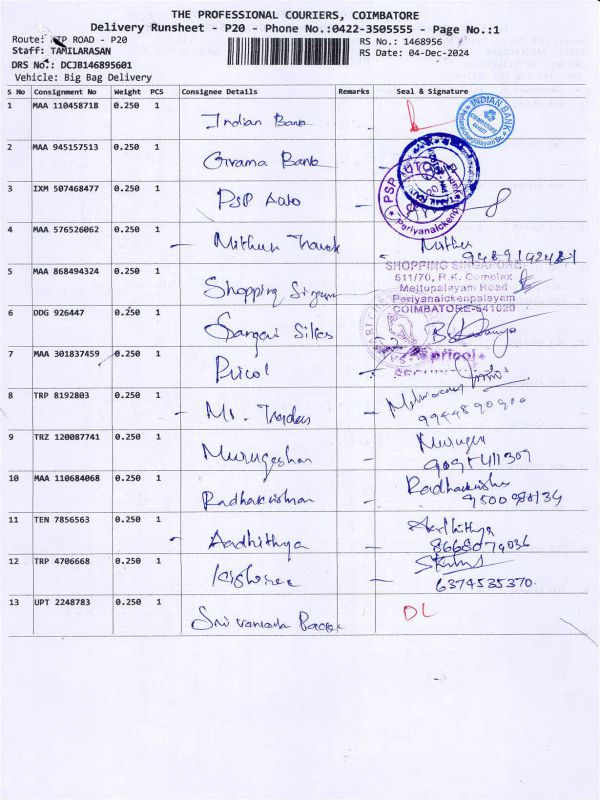 THE PROFESSIONAL COURIERS, COIMBATORE
Delivery Runsheet - P20 - Phone No.:0422-3505555 - Page No.:1
Route: MTP ROAD - P20
RS No.: 1468956
Staff: TAMILARASAN
RS Date: 04-Dec-2024
DRS No: DCJB146895601
Vehicle: Big Bag Delivery
S No Consignment No Weight PCS Consignee Details Remarks Seal & Signature
1 MAA 110458718 0.250 1 Indian Bank
INDIAN BANK
2 MAA 945157513 0.250 1 Grama Bank
3 IXM 507468477 0.250 1 PSP Auto
PSP AUTO
Periyanaickenpa
4 MAA 576526062 0.250 1 Mithun
5 MAA 868494324 0.250 1 Shopping
SHOPPING SINGAPORE
511/70, R.K. Complex
Mettupalayam Road
Periyanaickenpalayam
COIMBATORE-641020
6 DDG 926447 0.250 1 Silks
7 MAA 301837459 0.250 1 Pricol
pricol
8 TRP 8192803 0.250 1 Mr. Traders
9 TRZ 120087741 0.250 1 Murugeshan
Murugesh
10 MAA 110684068 0.250 1 Radhakrishnan
Radhakrishn
11 TEN 7856563 0.250 1 Aadhithya
Aadhithya
8668074036
12 TRP 4706668 0.250 1
6374535370
13 UPT 2248783 0.250 1 Sri
DL